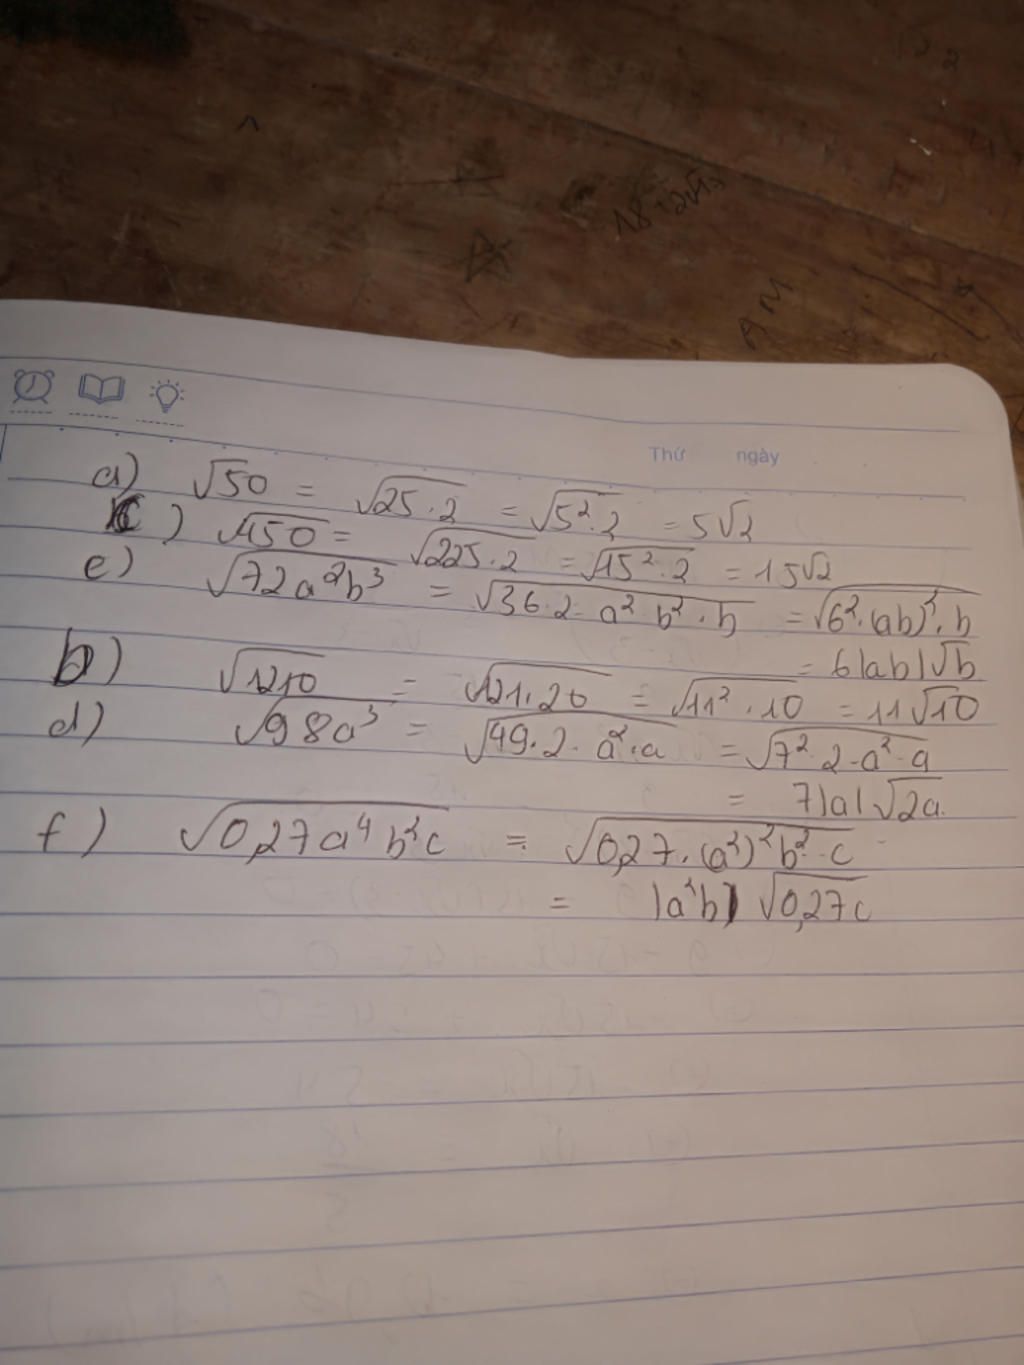 Thứ ngày
a) √50 = √25·2 = √5²·2 = 5√2
c) √450 = √225·2 = √15²·2 = 15√2
e) √72a²b³ = √36·2·a²b²·b = √6²·(ab)²·b
= 6|ab|√b
b) √1210 = √121·20 = √11²·10 = 11√10
d) √98a³ = √49·2·a²·a = √7²·2·a²·a
= 7|a|√2a
f) √0,27a⁴b²c = √0,27·(a²)²b²·c
= |a²b|√0,27c